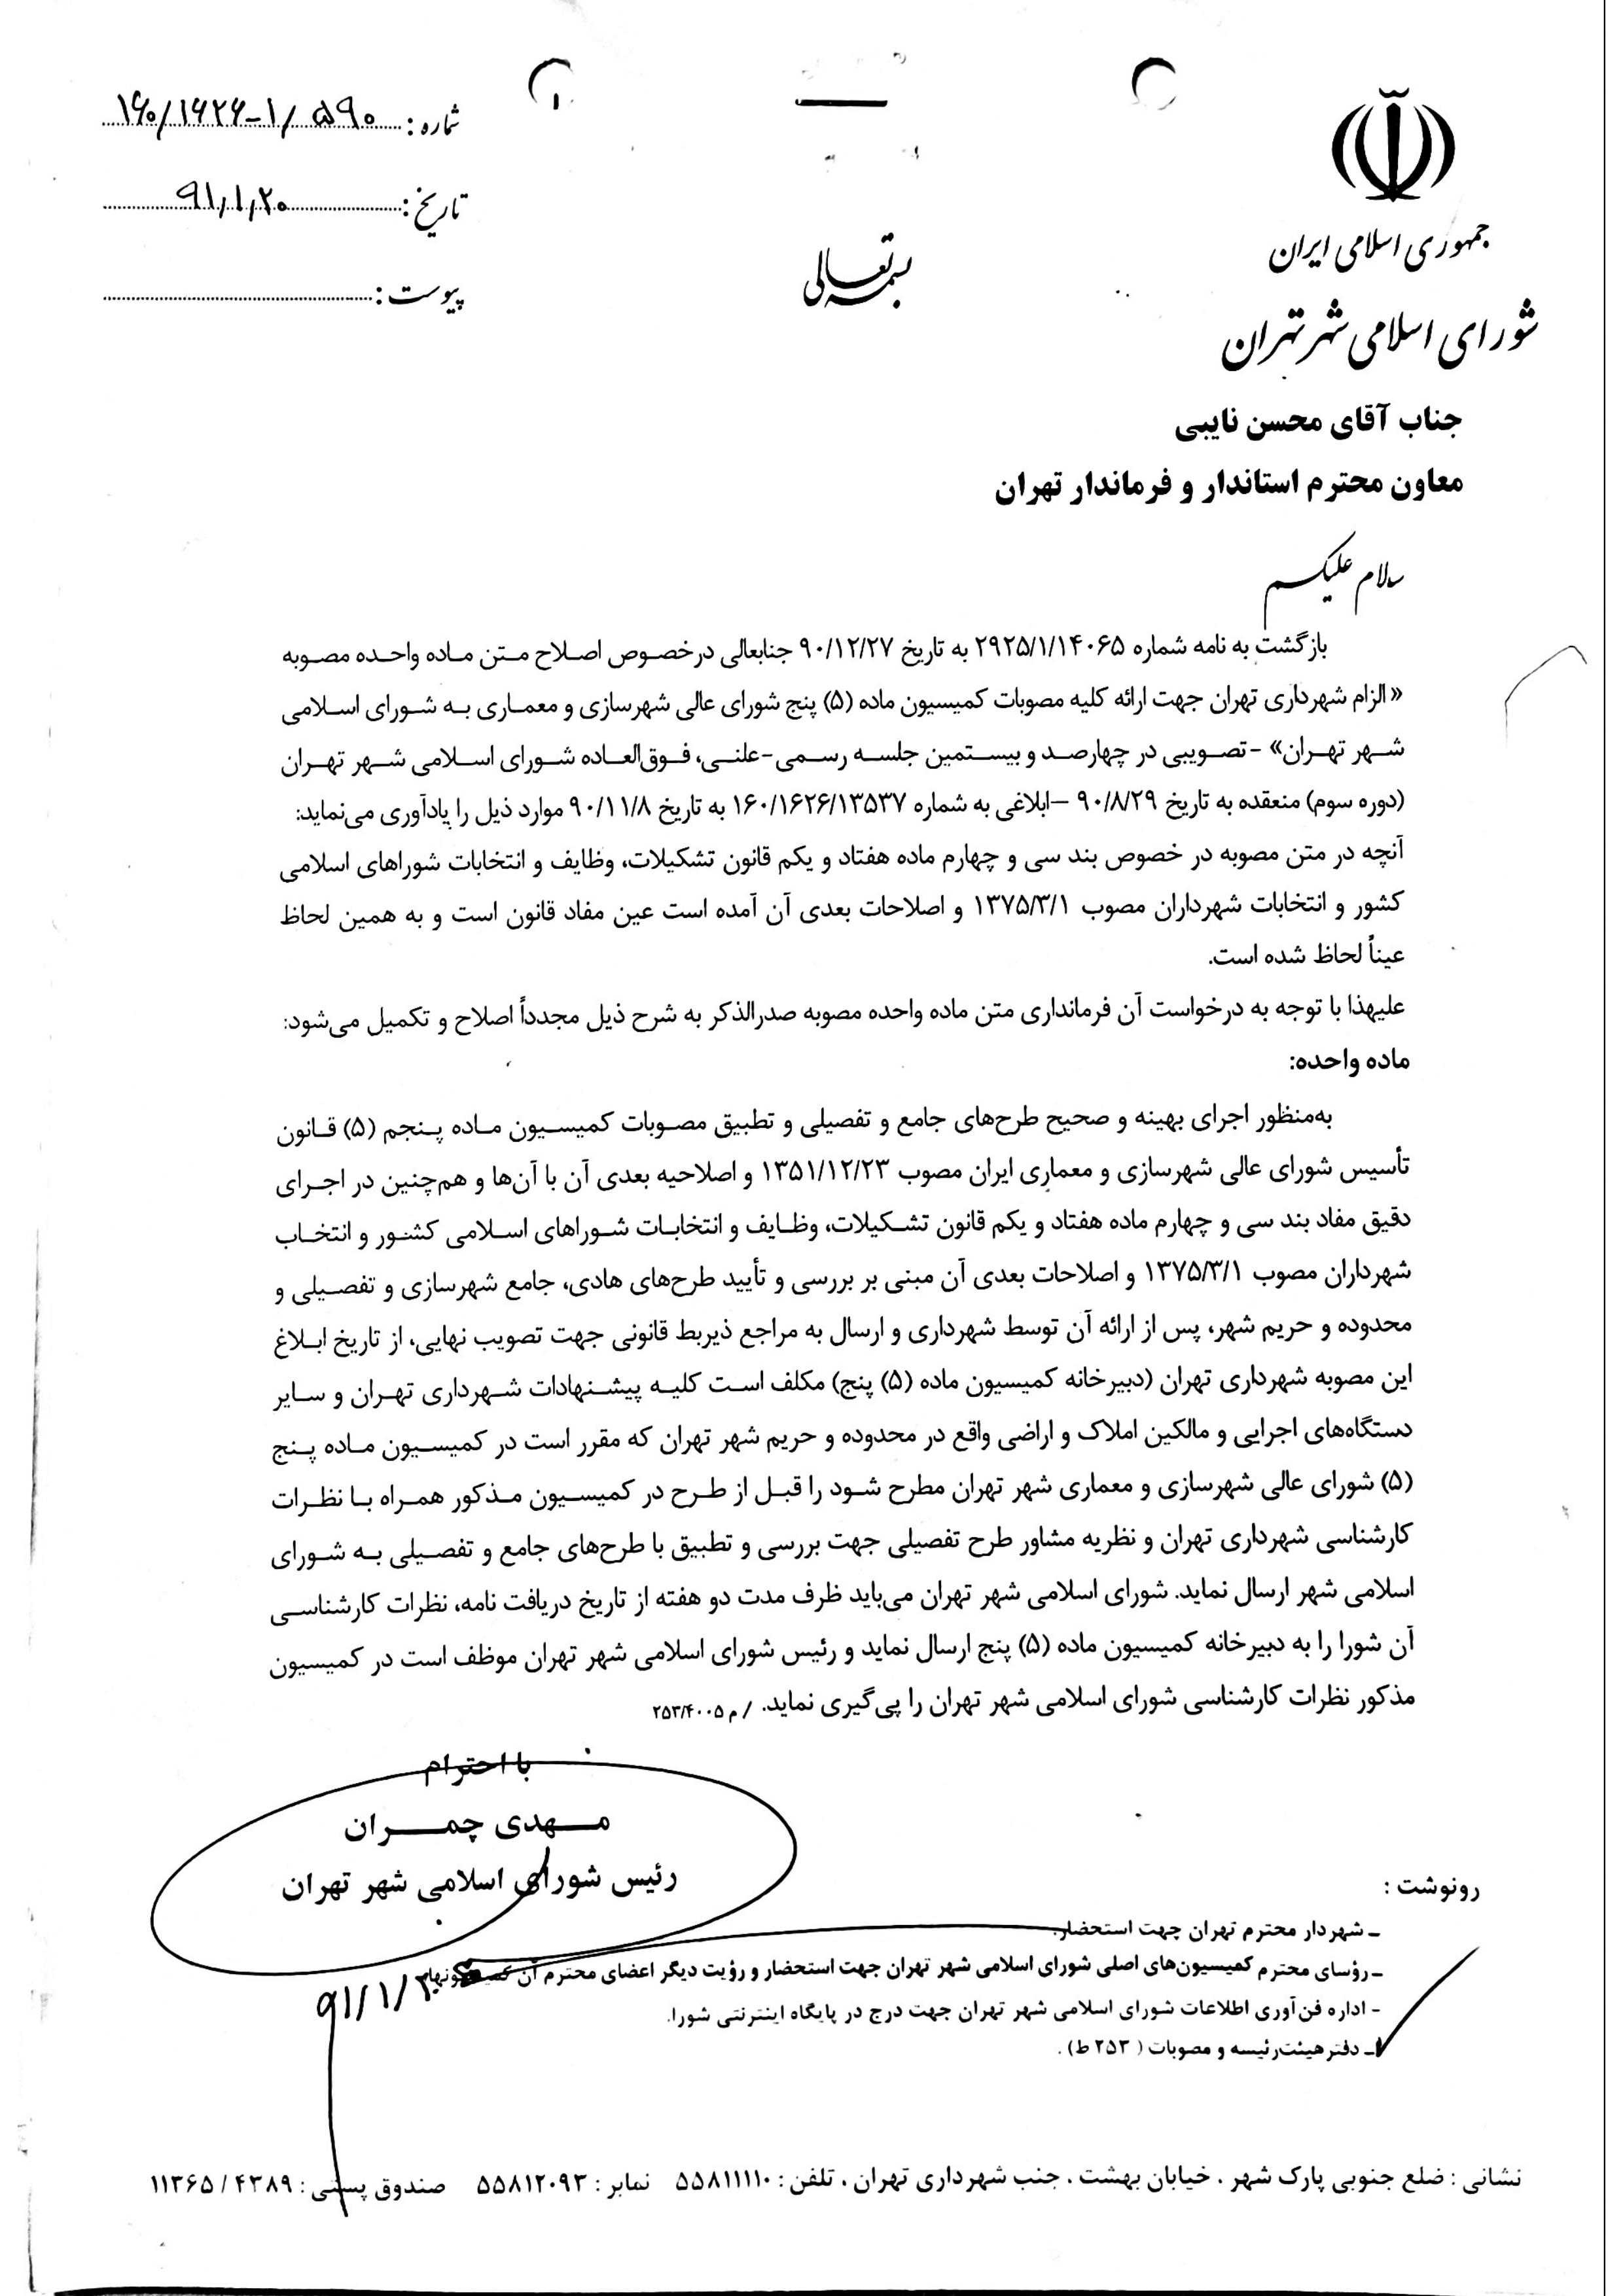 شماره: ۱۶۰/۱۶۲۶-۱/۵۹۰
تاریخ: ۹۱/۱/۲۰
پیوست:
بسمه تعالی
جمهوری اسلامی ایران
شورای اسلامی شهر تهران
جناب آقای محسن نایبی
معاون محترم استاندار و فرماندار تهران
سلام علیکم
بازگشت به نامه شماره ۲۹۲۵/۱/۱۴۰۶۵ به تاریخ ۹۰/۱۲/۲۷ جنابعالی درخصوص اصلاح متن ماده واحده مصوبه
«الزام شهرداری تهران جهت ارائه کلیه مصوبات کمیسیون ماده (۵) پنج شورای عالی شهرسازی و معماری به شورای اسلامی
شهر تهران» -تصویبی در چهارصد و بیستمین جلسه رسمی-علنی، فوق‌العاده شورای اسلامی شهر تهران
(دوره سوم) منعقده به تاریخ ۹۰/۸/۲۹ –ابلاغی به شماره ۱۶۰/۱۶۲۶/۱۳۵۳۷ به تاریخ ۹۰/۱۱/۸ موارد ذیل را یادآوری می‌نماید:
آنچه در متن مصوبه در خصوص بند سی و چهارم ماده هفتاد و یکم قانون تشکیلات، وظایف و انتخابات شوراهای اسلامی
کشور و انتخابات شهرداران مصوب ۱۳۷۵/۳/۱ و اصلاحات بعدی آن آمده است عین مفاد قانون است و به همین لحاظ
عیناً لحاظ شده است.
علیهذا با توجه به درخواست آن فرمانداری متن ماده واحده مصوبه صدرالذکر به شرح ذیل مجدداً اصلاح و تکمیل می‌شود:
ماده واحده:
به‌منظور اجرای بهینه و صحیح طرح‌های جامع و تفصیلی و تطبیق مصوبات کمیسیون ماده پنجم (۵) قانون
تأسیس شورای عالی شهرسازی و معماری ایران مصوب ۱۳۵۱/۱۲/۲۳ و اصلاحیه بعدی آن با آن‌ها و هم‌چنین در اجرای
دقیق مفاد بند سی و چهارم ماده هفتاد و یکم قانون تشکیلات، وظایف و انتخابات شوراهای اسلامی کشور و انتخاب
شهرداران مصوب ۱۳۷۵/۳/۱ و اصلاحات بعدی آن مبنی بر بررسی و تأیید طرح‌های هادی، جامع شهرسازی و تفصیلی و
محدوده و حریم شهر، پس از ارائه آن توسط شهرداری و ارسال به مراجع ذیربط قانونی جهت تصویب نهایی، از تاریخ ابلاغ
این مصوبه شهرداری تهران (دبیرخانه کمیسیون ماده (۵) پنج) مکلف است کلیه پیشنهادات شهرداری تهران و سایر
دستگاه‌های اجرایی و مالکین املاک و اراضی واقع در محدوده و حریم شهر تهران که مقرر است در کمیسیون ماده پنج
(۵) شورای عالی شهرسازی و معماری شهر تهران مطرح شود را قبل از طرح در کمیسیون مذکور همراه با نظرات
کارشناسی شهرداری تهران و نظریه مشاور طرح تفصیلی جهت بررسی و تطبیق با طرح‌های جامع و تفصیلی به شورای
اسلامی شهر ارسال نماید. شورای اسلامی شهر تهران می‌باید ظرف مدت دو هفته از تاریخ دریافت نامه، نظرات کارشناسی
آن شورا را به دبیرخانه کمیسیون ماده (۵) پنج ارسال نماید و رئیس شورای اسلامی شهر تهران موظف است در کمیسیون
مذکور نظرات کارشناسی شورای اسلامی شهر تهران را پی‌گیری نماید. / م ۲۵۳/۴۰۰۵
با احترام
مهدی چمران
رئیس شورای اسلامی شهر تهران
رونوشت :
ـ شهردار محترم تهران جهت استحضار.
ـ رؤسای محترم کمیسیون‌های اصلی شورای اسلامی شهر تهران جهت استحضار و رؤیت دیگر اعضای محترم آن
- اداره فن‌آوری اطلاعات شورای اسلامی شهر تهران جهت درج در پایگاه اینترنتی شورا.
ـ دفتر هیئت‌رئیسه و مصوبات (۲۵۳ ط) .
نشانی : ضلع جنوبی پارک شهر . خیابان بهشت . جنب شهرداری تهران . تلفن : ۵۵۸۱۱۱۱۰ نمابر : ۵۵۸۱۲۰۹۳ صندوق پستی : ۴۳۸۹ / ۱۱۳۶۵